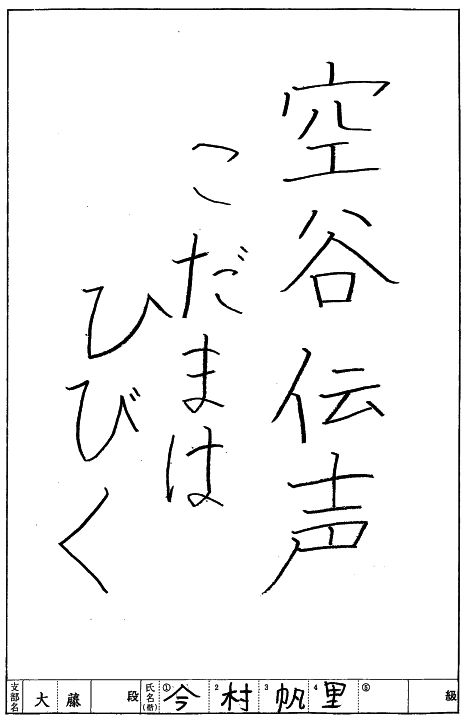 空谷伝声
こだまは
ひびく
支部名 大藤 段 氏名(楷) ①今 2村 3帆 4里 ⑤ 級